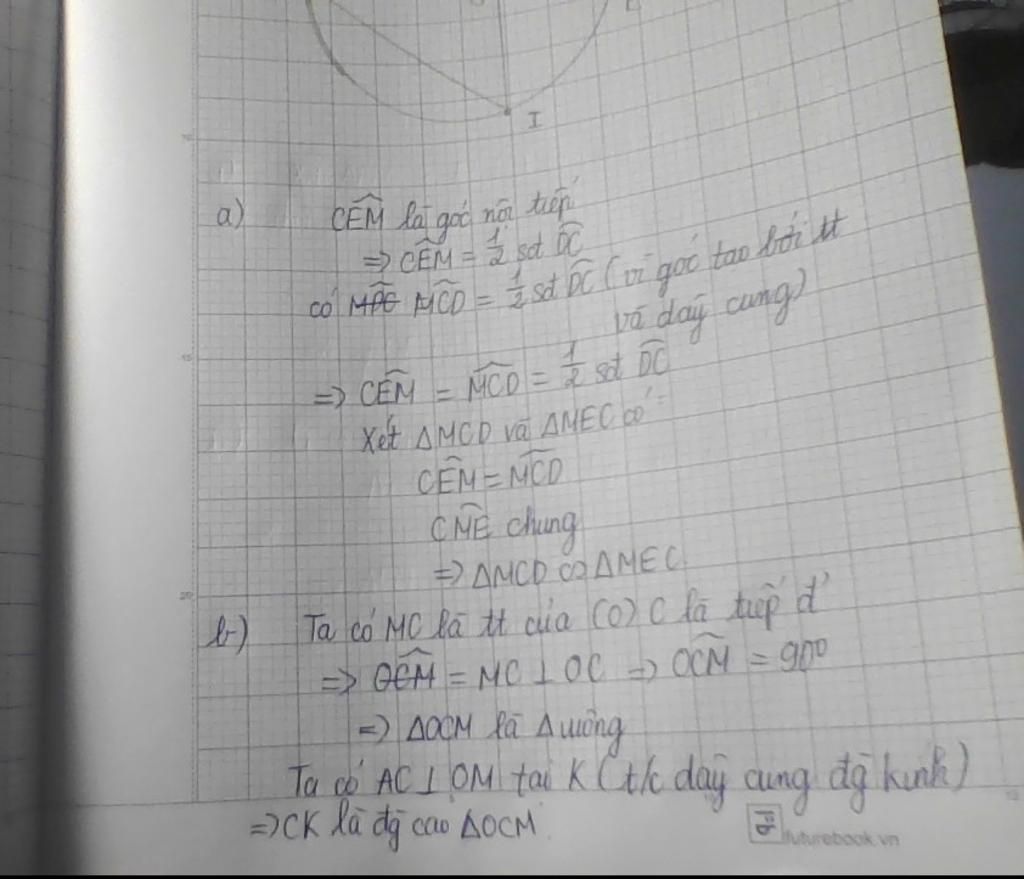 I
a) CÊM là góc nội tiếp
=> CÊM = 1/2 sđ DC
có MCD = 1/2 sđ DC (vì góc tạo bởi tt
và dây cung)
=> CÊM = MCD = 1/2 sđ DC
Xét ΔMCD và ΔMEC có
CÊM = MCD
CME chung
=> ΔMCD ∽ ΔMEC
b) Ta có MC là tt của (O) C là tiếp đ'
=> OCM = MC ⊥ OC => OCM = 90⁰
=> ΔOCM là Δ vuông
Ta có AC ⊥ OM tại K (t/c dây cung đg kính)
=> CK là đg cao ΔOCM
futurebook.vn